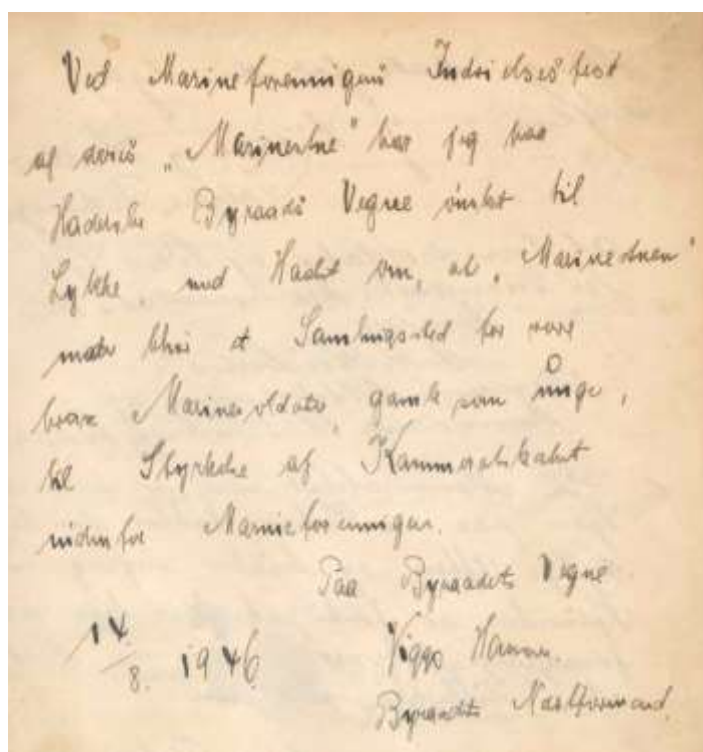 Ved Marineforeningens Indvielsesfest
af deres „Marinestue" har jeg paa
Haderslev Byraads Vegne ønsket til
Lykke, med Haabet om, at „Marinestuen"
maatte blive et Samlingssted for vore
brave Marinesoldater, gamle som unge,
til Styrkelse af Kammeratskabet
indenfor Marineforeningen.
Paa Byraadets Vegne
14/8. 1946 Viggo
Byraadets Næstformand